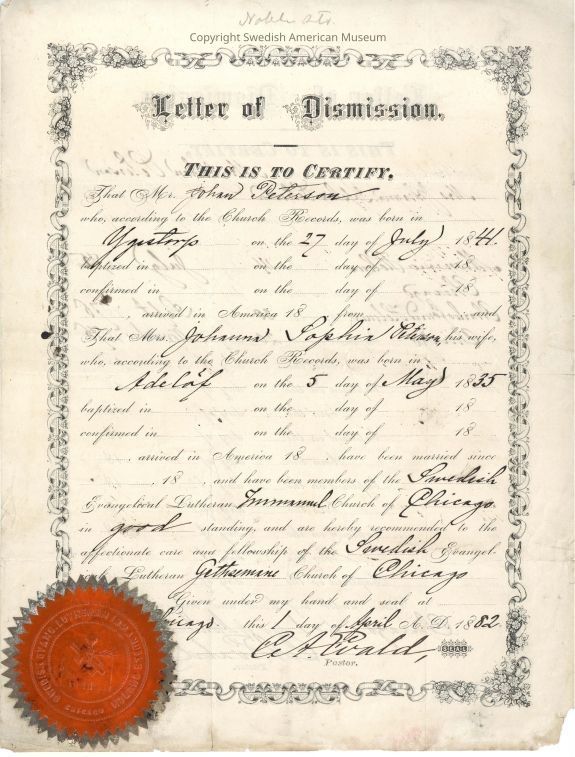 Noble Str.
Copyright Swedish American Museum
Letter of Dismission.
THIS IS TO CERTIFY.
That Mr. Johan Peterson
who, according to the Church Records, was born in
Ygestorp on the 27 day of July 1841.
baptized in on the day of 18
confirmed in on the day of 18
, arrived in America 18 from and
That Mrs. Johanna Sophia Peterson, his wife,
who, according to the Church Records, was born in
Adelöf on the 5 day of May 1835
baptized in on the day of 18
confirmed in on the day of 18
, arrived in America 18 , have been married since
, 18 , and have been members of the Swedish
Evangelical Lutheran Immanuel Church of Chicago
in good standing, and are hereby recommended to the
affectionate care and fellowship of the Swedish Evangel-
Lutheran Gethsemane Church of Chicago
Given under my hand and seal at
this 1 day of April A. D. 1882
C. A. Evald,
SEAL
Pastor.
Chicago